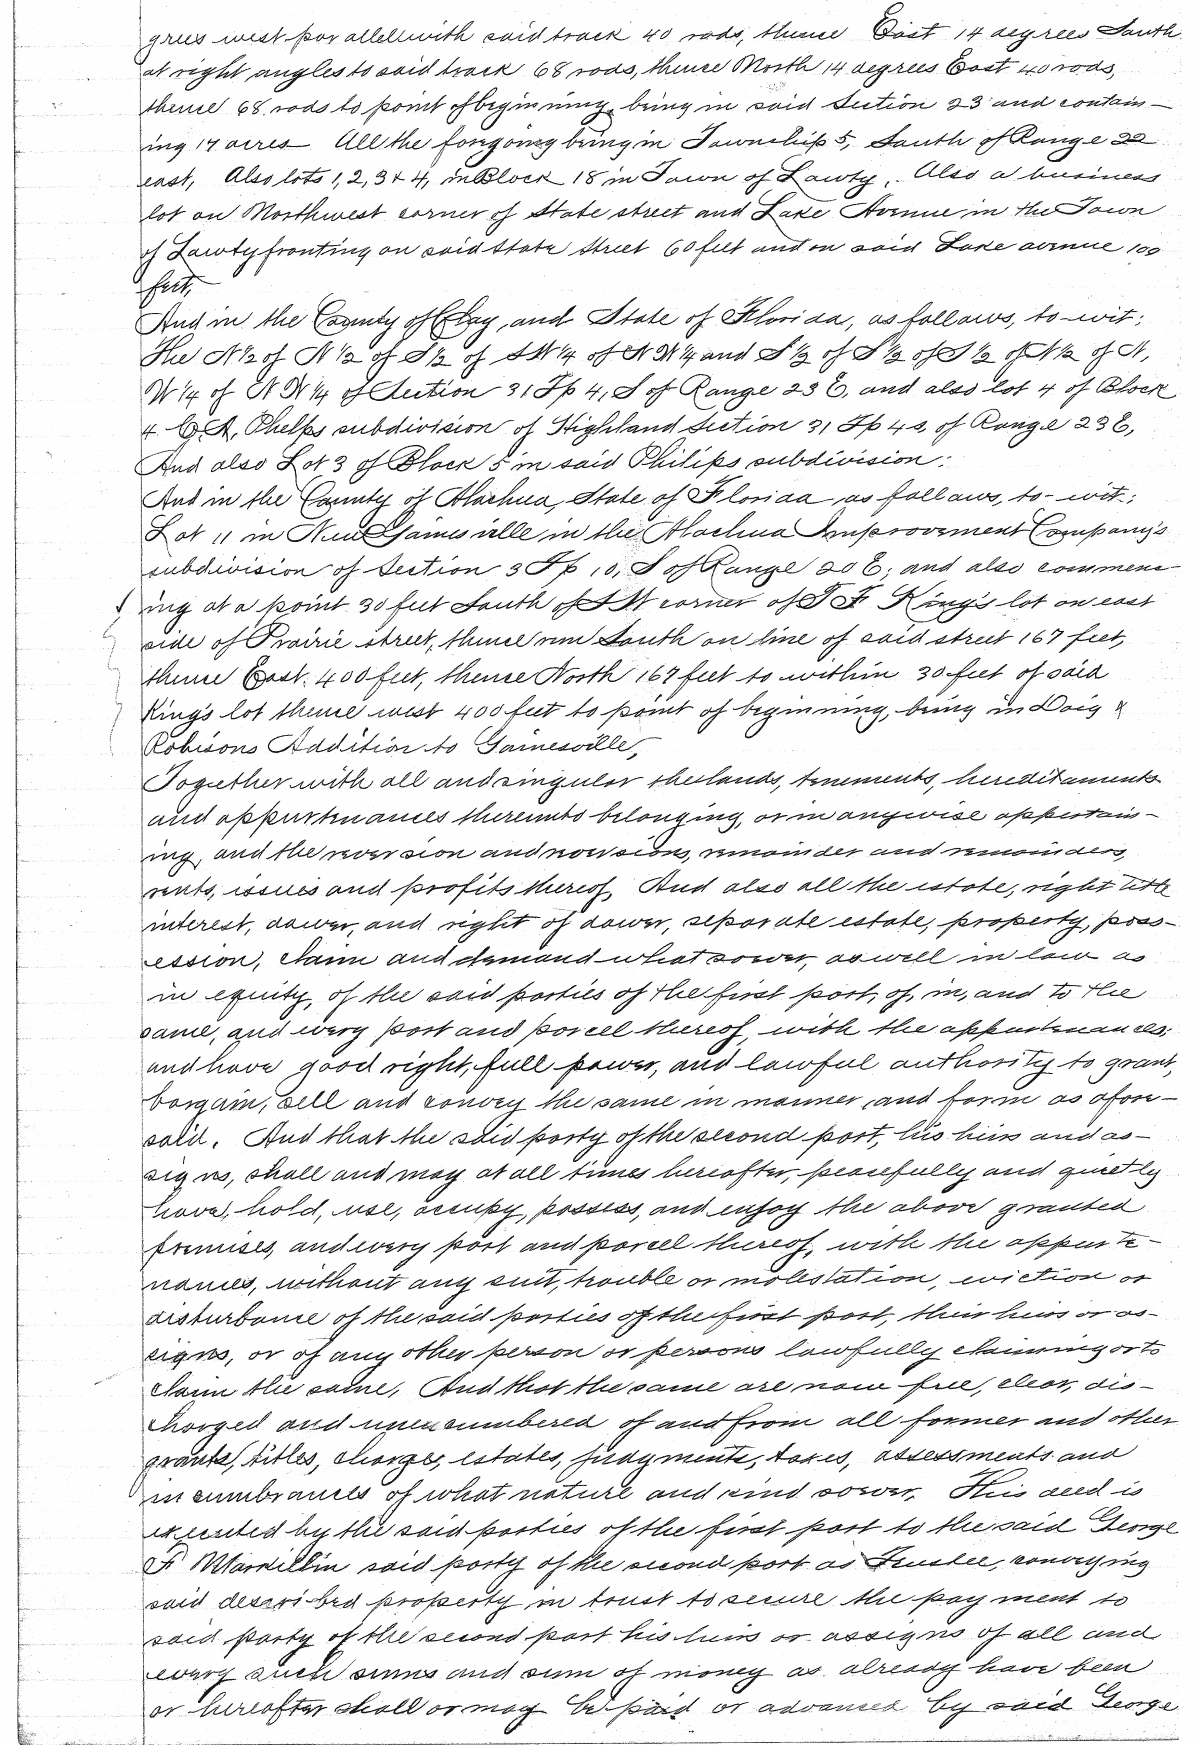 grees west parallell with said track 40 rods, thence East 14 degrees South
at right angles to said track 68 rods, thence North 14 degrees East 40 rods,
thence 68 rods to point of beginning, being in said Section 23 and contain-
ing 17 acres All the forgoing being in Township 5, South of Range 22
east, Also lots 1, 2, 3 & 4, in Block 18 in Town of Lawty, Also a business
lot on Northwest corner of State street and Lake Avenue in the Town
of Lawty fronting on said State Street 60 feet and on said Lake avenue 100
feet,
And in the County of Clay, and State of Florida, as follows, to-wit;
The N½ of N½ of S½ of S W¼ of N W¼ and S½ of S½ of S½ of N½ of N,
W¼ of N W¼ of Section 31 Tp 4, S of Range 23 E, and also lot 4 of Block
4 C. A, Phelps subdivision of Highland Section 31 Tp 4 S, of Range 23 E,
And also Lot 3 of Block 5 in said Philips subdivision;
And in the County of Alachua, State of Florida as follows, to-wit;
Lot 11 in New Gainesville in the Alachua Improvement Company's
subdivision of Section 3 Tp 10, S of Range 20 E; and also commenc-
ing at a point 30 feet South of S W corner of T F King's lot on east
side of Prairie street, thence run South on line of said street 167 feet,
thence East 400 feet, thence North 167 feet to within 30 feet of said
King's lot thence west 400 feet to point of beginning, being in Doig &
Robisons Addition to Gainesville,
Together with all and singular the lands, tenements, hereditaments
and appurtenances thereunto belonging, or in anywise appertain-
ing, and the reversion and reversions, remainder and remainders,
rents, issues and profits thereof, And also all the estate, right title
interest, dower, and right of dower, separate estate, property, poss-
ession, claim and demand whatsoever, as well in law as
in equity, of the said parties of the first part, of, in, and to the
same, and every part and parcell thereof, with the appurtenances;
and have good right, full power, and lawful authority to grant,
bargain, sell and convey the same in manner and form as afore-
said. And that the said party of the second part, his heirs and as-
signs, shall and may at all times hereafter, peacefully and quietly
have, hold, use, occupy, possess, and enjoy the above granted
premises, and every part and parcell thereof, with the appurte-
nances, without any suit, trouble or molestation, eviction or
disturbance of the said parties of the first part, their heirs or as-
signs, or of any other person or persons lawfully claiming or to
claim the same, And that the same are now free, clear, dis-
charged and unencumbered of and from all former and other
grants, titles, charges, estates, judgments, taxes, assessments and
incumbrances of what nature and kind soever, This deed is
executed by the said parties of the first part to the said George
F said party of the second part as Trustee, conveying
said described property in trust to secure the payment to
said party of the second part his heirs or assigns of all and
every such sums and sum of money as already have been
or hereafter shall or may be paid or advanced by said George